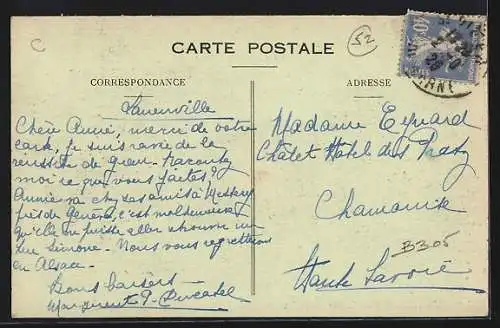 C
52
CARTE POSTALE
CORRESPONDANCE
ADRESSE
40
20
MARNE
Chère Annie, merci de votre
carte, je suis ravie de la
réussite de Racontez
moi ce que vous faites?
Annie va chez les amis à
près de Genève, c'est malheureux
qu'elle ne puisse aller chez
Simone. Nous vous regrettons
en Alsace.
Bons baisers
Marguerite
Madame Eynard
Châlet Hôtel des Praz
Chamonix
B305
Haute Savoie